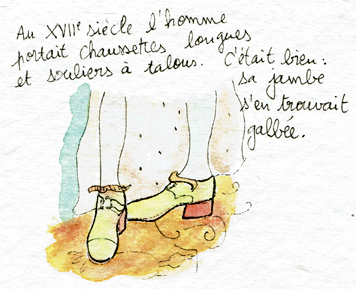 Au XVIIe siècle l'homme
portait chaussettes longues
et souliers à talons. C'était bien :
sa jambe
s'en trouvait
galbée.